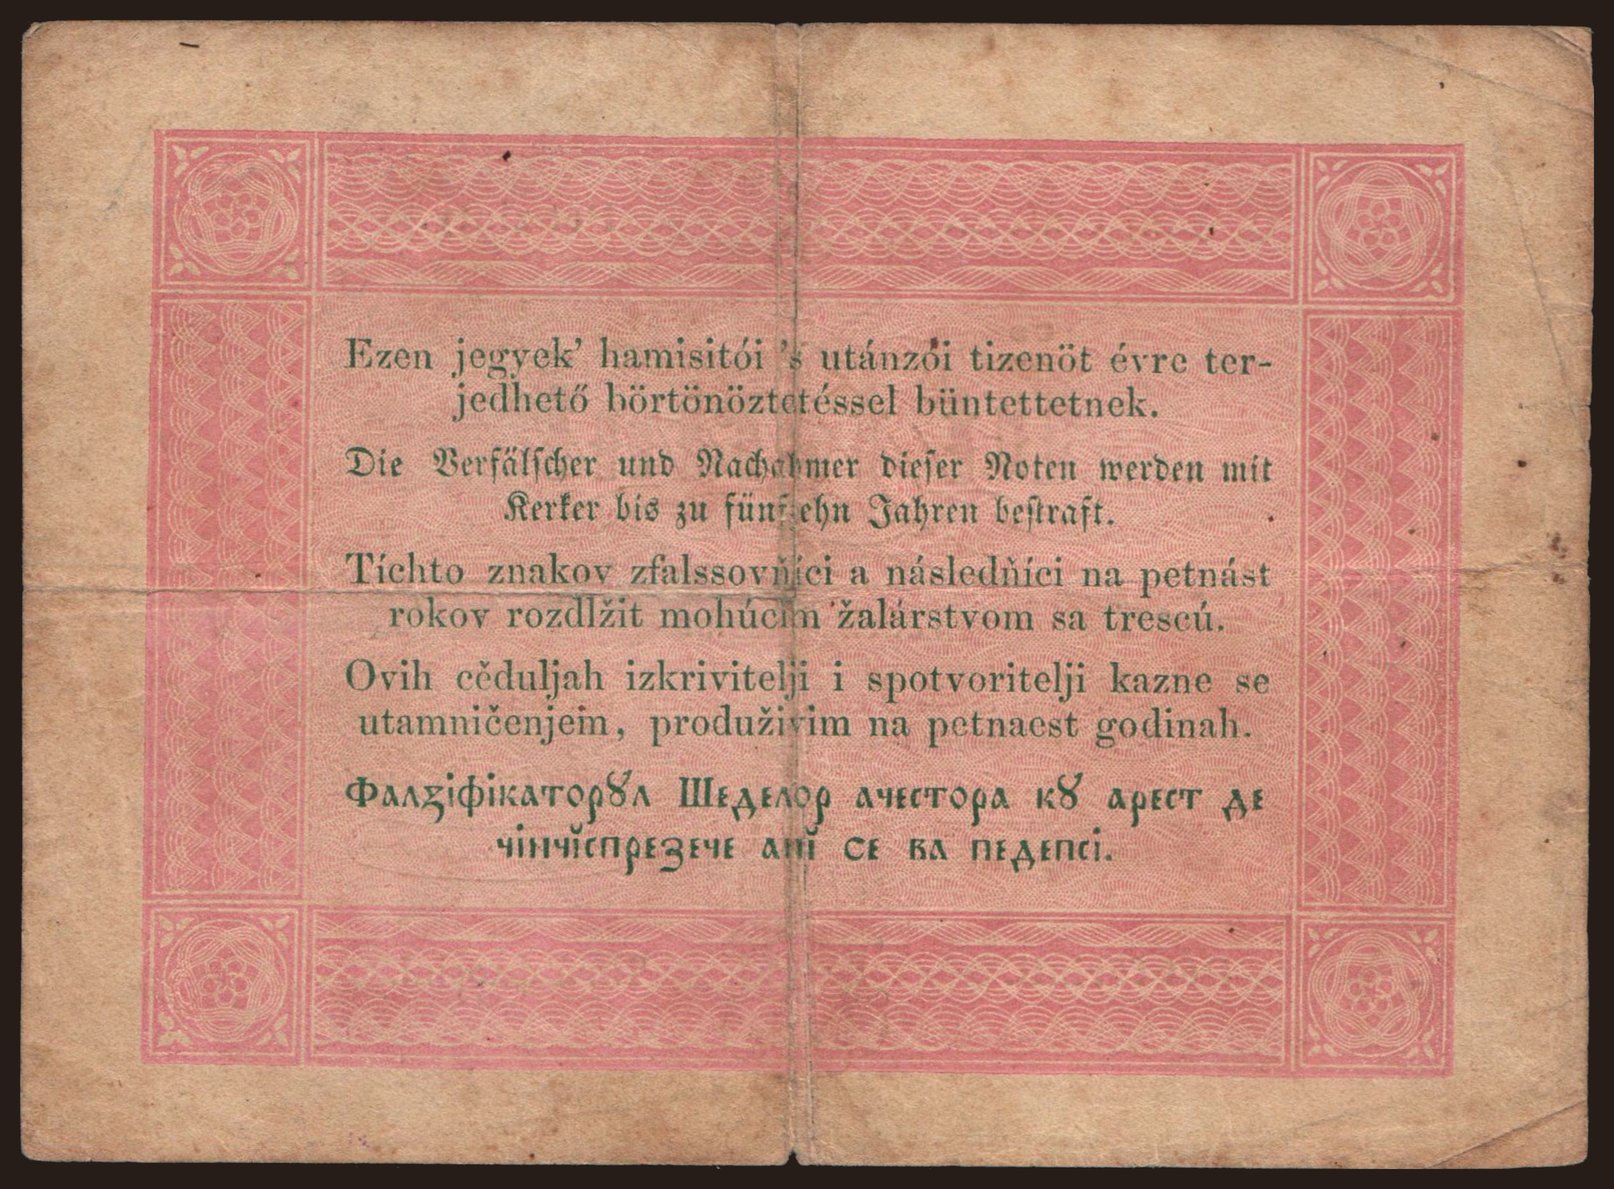 Ezen jegyek’ hamisitói ’s utánzói tizenöt évre ter-
jedhető börtönöztetéssel büntettetnek.
Die Verfälscher und Nachahmer dieser Noten werden mit
Kerker bis zu fünfzehn Jahren bestraft.
Tíchto znakov zfalssovňíci a následňíci na petnást
rokov rozdlžit mohúcím žalárstvom sa trescú.
Ovih cěduljah izkrivitelji i spotvoritelji kazne se
utamničenjem, produživim na petnaest godinah.
Фалзіфікаторꙋл Шеделор ачестора кꙋ арест де
чінчĭспрезече анĭ се ва педепсі.